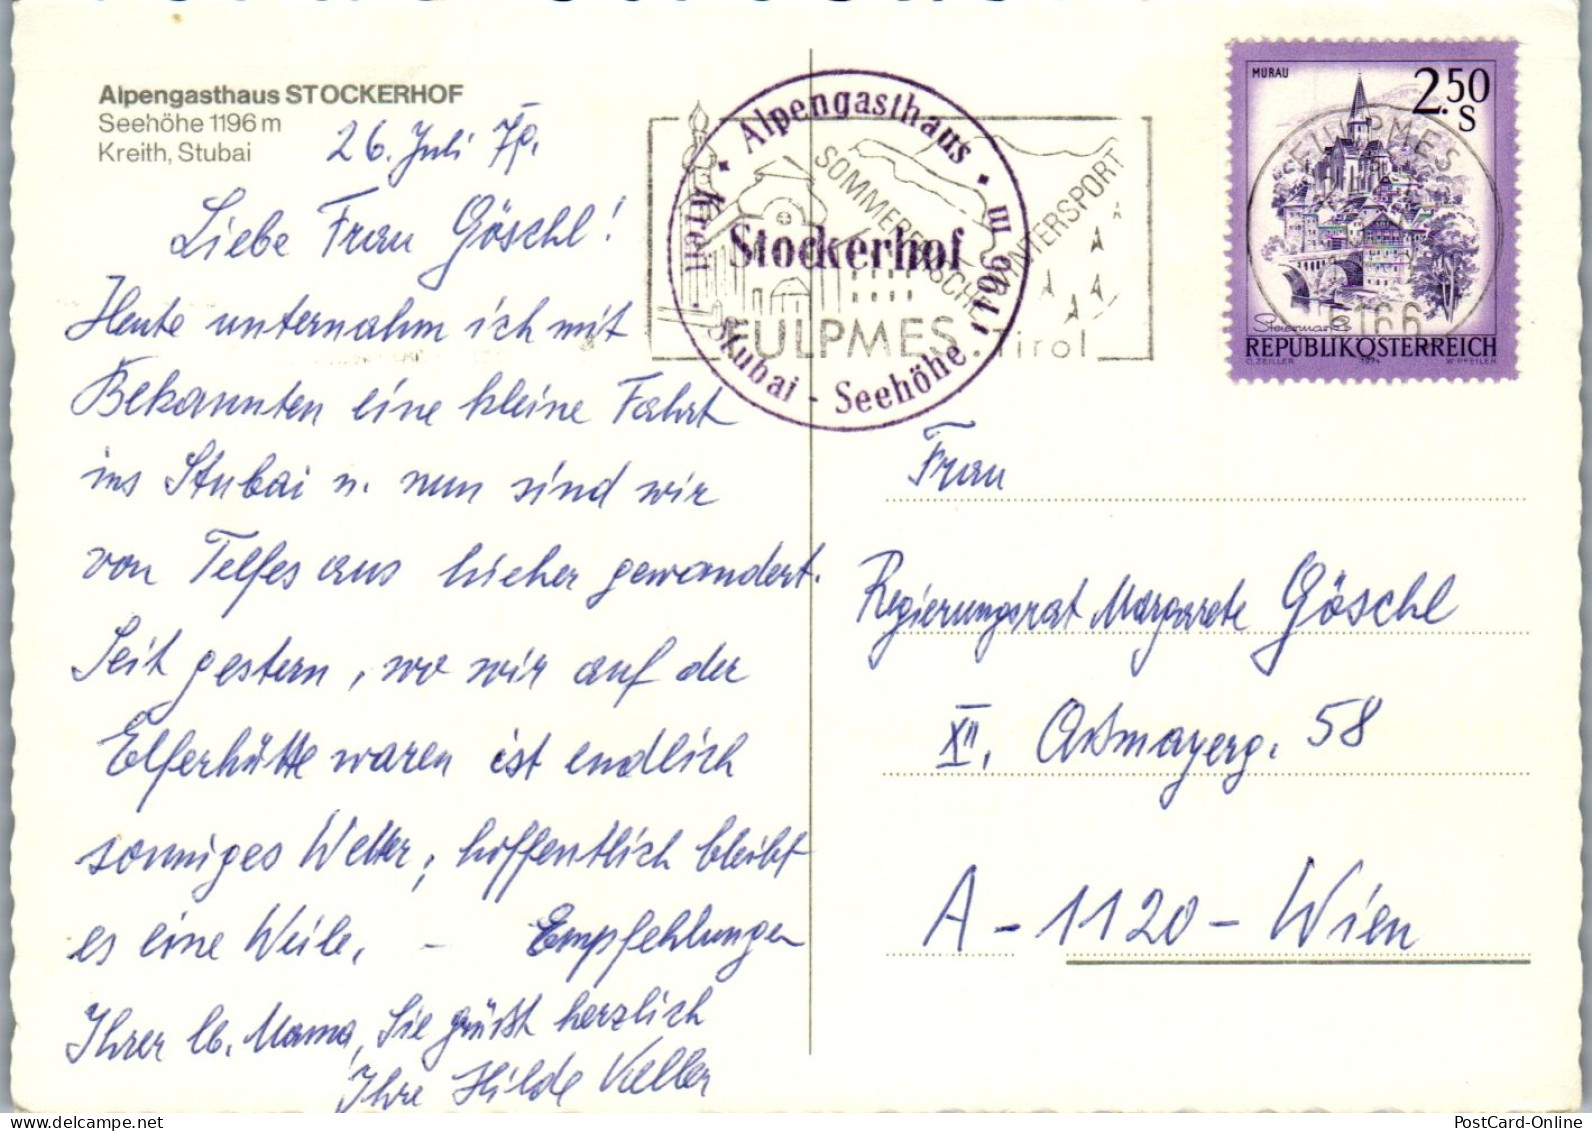 Alpengasthaus STOCKERHOF
Seehöhe 1196 m
Kreith, Stubai
26. Juli
Liebe Frau Göschl!
Heute unternahm ich mit
Bekannten eine kleine Fahrt
ins Stubai u. nun sind wir
von Telfes aus hieher gewandert.
Seit gestern, wo wir auf der
Elferhütte waren ist endlich
sonniges Wetter; hoffentlich bleibt
es eine Weile. – Empfehlungen
Ihrer lb. Mama, Sie grüßt herzlich
Ihre Hilde Keller
Alpengasthaus
Stockerhof
Kreit · Stubai - Seehöhe 1196 m
SOMMERFRISCHE
WINTERSPORT
FULPMES, Tirol
MURAU
2.50
S
FULPMES
6166
Steiermark
REPUBLIK ÖSTERREICH
O. ZEILLER 1974 W. PFEILER
Frau
Regierungsrat Margarete Göschl
XII, Aßmayerg. 58
A-1120-Wien
PostCard-Online